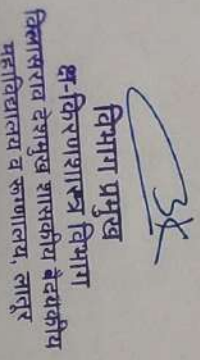 विभाग प्रमुख
क्ष-किरणशास्त्र विभाग
विलासराव देशमुख शासकीय वैद्यकीय
महाविद्यालय व रुग्णालय, लातूर